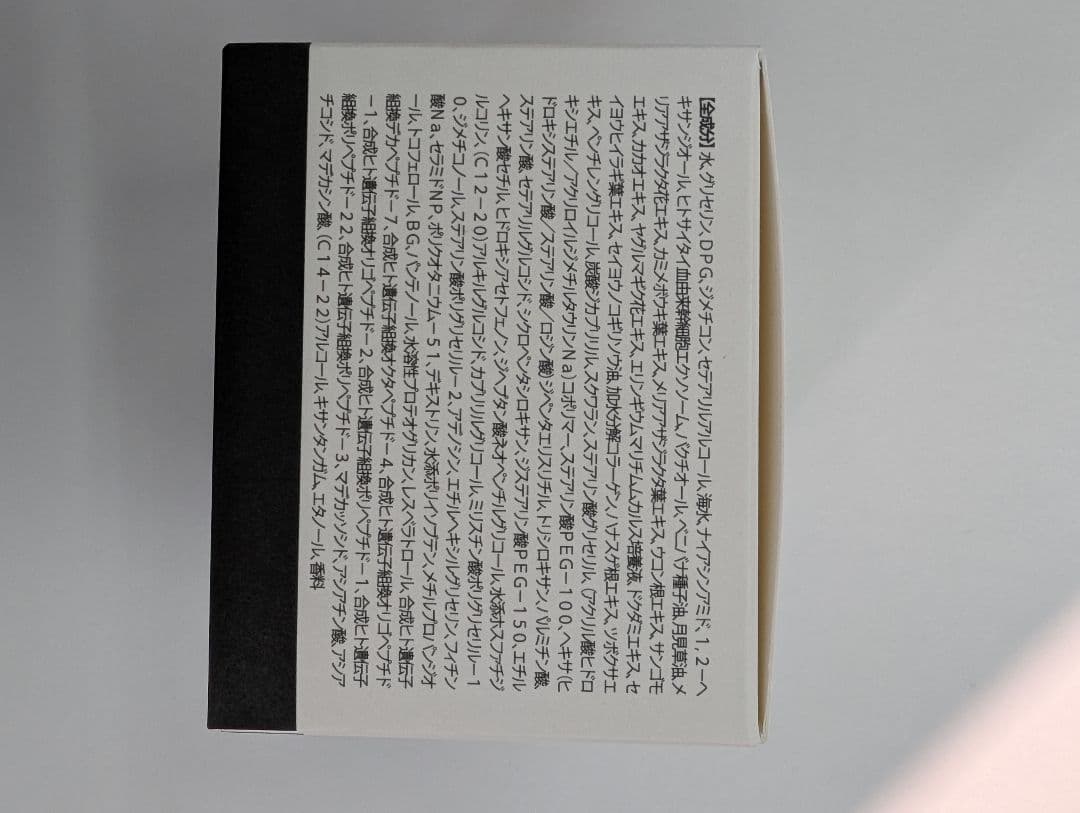 【全成分】水、グリセリン、DPG、ジメチコン、セテアリルアルコール、海水、ナイアシンアミド、1,2-ヘ
キサンジオール、ヒトサイタイ血由来幹細胞エクソソーム、バクチオール、ベニバナ種子油、月見草油、メ
リアアザジラクタ花エキス、カミメボウキ葉エキス、メリアアザジラクタ葉エキス、ウコン根エキス、サンゴモ
エキス、カカオエキス、ヤグルマギク花エキス、エリンギウムマリチムムカルス培養液、ドクダミエキス、セ
イヨウヒイラギ葉エキス、セイヨウノコギリソウ油、加水分解コラーゲン、ハナスゲ根エキス、ツボクサエ
キス、ペンチレングリコール、炭酸ジカプリリル、スクワラン、ステアリン酸グリセリル、(アクリル酸ヒドロ
キシエチル/アクリロイルジメチルタウリンNa)コポリマー、ステアリン酸PEG-100、ヘキサ(ヒ
ドロキシステアリン酸/ステアリン酸/ロジン酸)ジペンタエリスリチル、トリシロキサン、パルミチン酸、
ステアリン酸、セテアリルグルコシド、シクロペンタシロキサン、ジステアリン酸PEG-150、エチル
ヘキサン酸セチル、ヒドロキシアセトフェノン、ジヘプタン酸ネオペンチルグリコール、水添ホスファチジ
ルコリン、(C12-20)アルキルグルコシド、カプリリルグリコール、ミリスチン酸ポリグリセリル-1
0、ジメチコノール、ステアリン酸ポリグリセリル-2、アデノシン、エチルヘキシルグリセリン、フィチン
酸Na、セラミドNP、ポリクオタニウム-51、デキストリン、水添ポリイソブテン、メチルプロパンジオ
ール、トコフェロール、BG、パンテノール、水溶性プロテオグリカン、レスベラトロール、合成ヒト遺伝子
組換デカペプチド-7、合成ヒト遺伝子組換オクタペプチド-4、合成ヒト遺伝子組換オリゴペプチド
-1、合成ヒト遺伝子組換オリゴペプチド-2、合成ヒト遺伝子組換ポリペプチド-1、合成ヒト遺伝子
組換ポリペプチド-22、合成ヒト遺伝子組換ポリペプチド-3、マデカッソシド、アシアチン酸、アシア
チコシド、マデカシン酸、(C14-22)アルコール、キサンタンガム、エタノール、香料